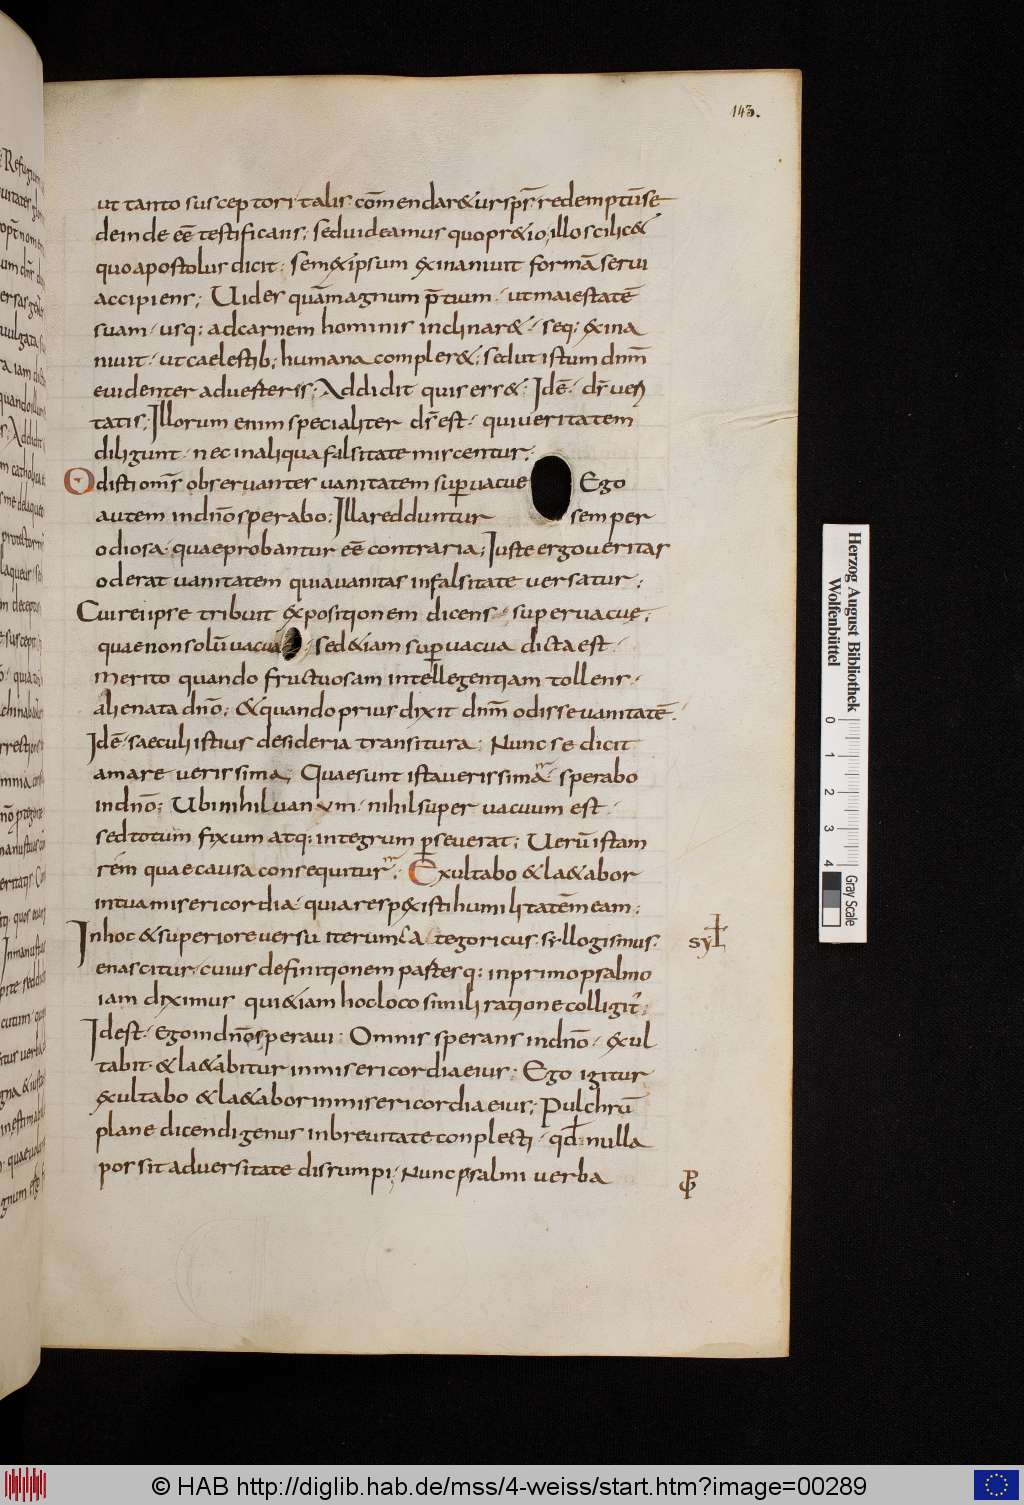 143.
ut tanto susceptori talis com̄endar& ur sps̄ redemptū se
deinde eē testificans; sed uideamus quo pr&io, illo scilic&
quo apostolus dicit; sem&ipsum exinaniuit formā serui
accipiens; Uides quā magnum p̄tium· ut maiestatē
suam· usq; ad carnem hominis inclinar&· seq; exina
niuit· ut caelestib; humana compler&; sed ut istum dnm̄
euidenter aduesteris; Addidit quis ess&; Idē· ds̄ ueri
tatis; Illorum enim specialiter ds̄ est· qui ueritatem
diligunt· nec in aliqua falsitate miscentur;
Odisti oms̄ obseruanter uanitatem sup̄uacue Ego
autem in dnō sperabo; Illa redduntur semper
odiosa· quae probantur eē contraria; Iuste ergo ueritas
oderat uanitatem quia uanitas in falsitate uersatur;
Cui re ipse tribuit expositionem dicens· superuacue;
quae non solū uacua· sed &iam sup̄uacua dicta est·
merito quando fructuosam intellegentiam tollens·
alienata dnō; & quando prius dixit dnm̄ odisse uanitatē·
Idē· saeculi istius desideria transitura· Nunc se dicit
amare uerissima; Quae sunt ista uerissima· sperabo
in dnō; Ubi nihil uanum· nihil superuacuum est·
sed totum fixum atq; integrum p̄seuerat; Uerū istam
rem quae causa consequitur; Exultabo & la&abor
in tua misericordia· quia respexisti humilitatēm eam;
In hoc & superiore uersu iterum ca tegoricus syllogismus·
sył
enascitur· cuius definitionem paster q; in primo psalmo
iam diximus qui &iam hoc loco simili ratione colligit̄;
Idest· Ego in dnō speraui· Omnis sperans in dnō· exul
tabit· & la&abitur in misericordia eius; Ego igitur
exultabo & la&abor in misericordia eius; Pulchrū
plane dicendi genus in breuitate conplecti· qđ nulla
possit aduersitate disrumpi; Nunc psalmi uerba
Herzog August Bibliothek
Wolfenbüttel
0 1 2 3 4
Gray Scale
© HAB http://diglib.hab.de/mss/4-weiss/start.htm?image=00289